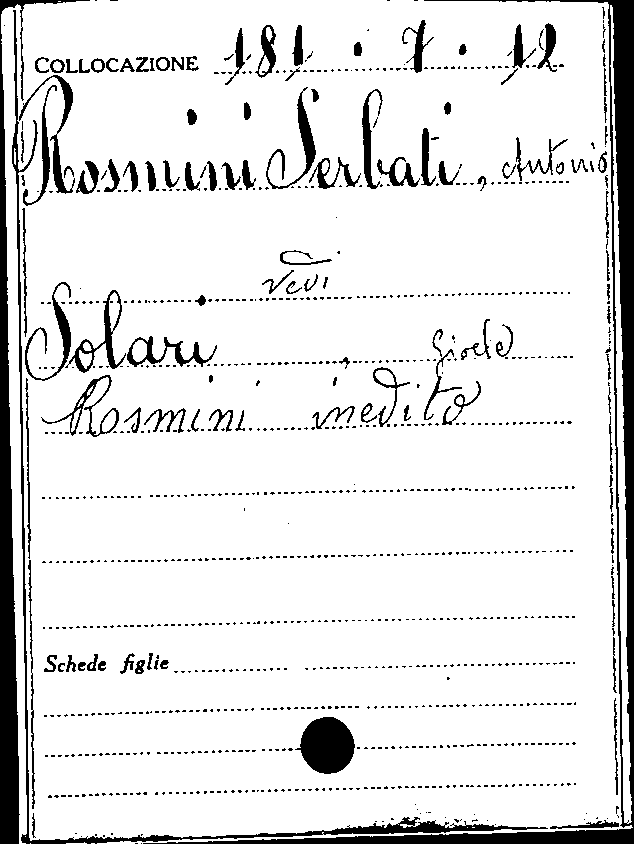 COLLOCAZIONE 181 . 7 . 12
Rosmini Serbati, Antonio
vedi
Solari, Gioele
Rosmini inedito
Schede figlie